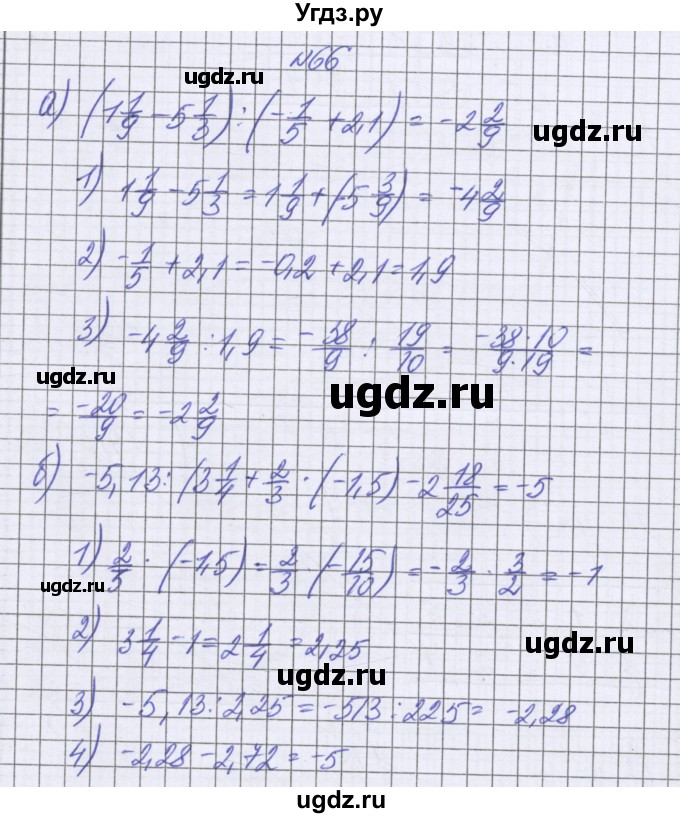 Угдз.ру
№66
ugdz.ru
а) (1 1/9 − 5 1/3) : (−1/5 + 2,1) = −2 2/9
ugdz.ru
1) 1 1/9 − 5 1/3 = 1 1/9 + (5 3/9) = −4 2/9
ugdz.ru
2) −1/5 + 2,1 = −0,2 + 2,1 = 1,9
ugdz.ru
3) −4 2/9 : 1,9 = −38/9 : 19/10 = −38·10/9·19 =
ugdz.ru
ugdz.ru
= −20/9 = −2 2/9
б) −5,13 : (3 1/4 + 2/3 · (−1,5) − 2 18/25 = −5
ugdz.ru
1) 2/3 · (−1,5) = 2/3 · (−15/10) = −2/3 · 3/2 = −1
ugdz.ru
2) 3 1/4 − 1 = 2 1/4 = 2,25
ugdz.ru
ugdz.ru
3) −5,13 : 2,25 = −513 : 225 = −2,28
ugdz.ru
4) −2,28 − 2,72 = −5
ugdz.ru
ugdz.ru